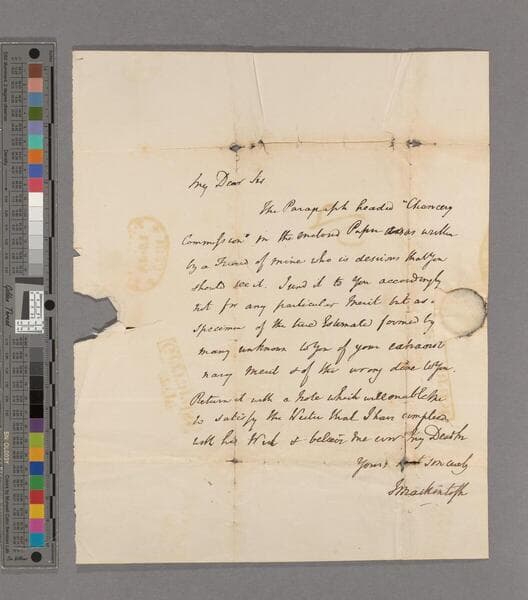 My Dear Sir
The Paragraph headed "Chancery
Commission" in the enclosed Paper was written
by a Friend of mine who is desirous that you
should see it. I send it to you accordingly
not for any particular Merit but as a
specimen of the true Estimate formed by
many unknown to you of your extraordi
nary Merit & of the wrong done to you.
Return it with a Note which will enable me
to satisfy the Writer that I have complied
with his Wish & believe me ever My Dear Sir
Yours most sincerely
J Mackintosh